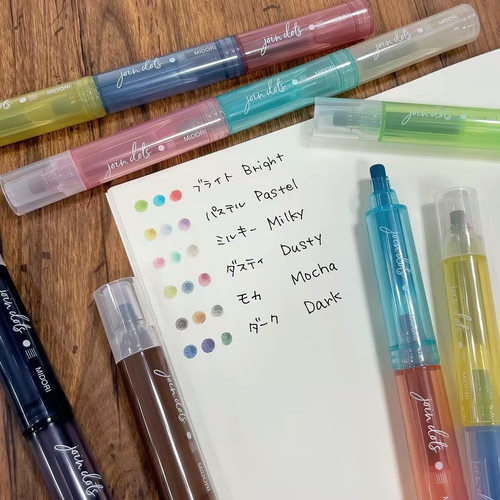 join dots MIDORI
join dots MIDORI
join dots MIDORI
join dots MIDORI
join dots MIDORI
join dots
MIDORI
ブライト Bright
パステル Pastel
ミルキー Milky
ダスティ Dusty
モカ Mocha
ダーク Dark
join dots MIDORI
join dots
join dots MIDORI
join dots
join dots MIDORI
join dots